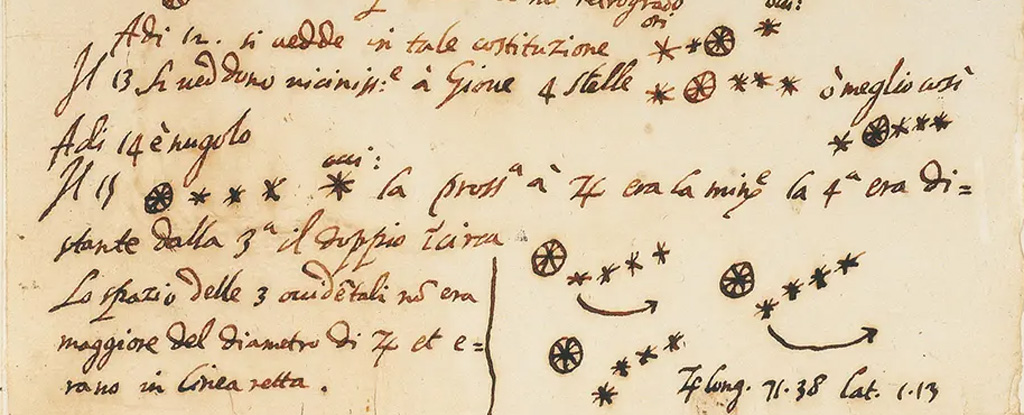 retrogrado
ori: occi:
Adi 12. si vedde in tale costituzione
Il 13 si veddono viciniss:e à Giove 4 stelle ò meglio così
Adi 14 è nugolo
occi:
Il 15 la pross.a à ♃ era la min.e la 4.a era di=
stante dalla 3.a il doppio ĩcirca
Lo spazio delle 3 occidẽtali nõ era
maggiore del diametro di ♃ et e=
rano in linea retta.
♃ long. 71.38 lat. 1.13